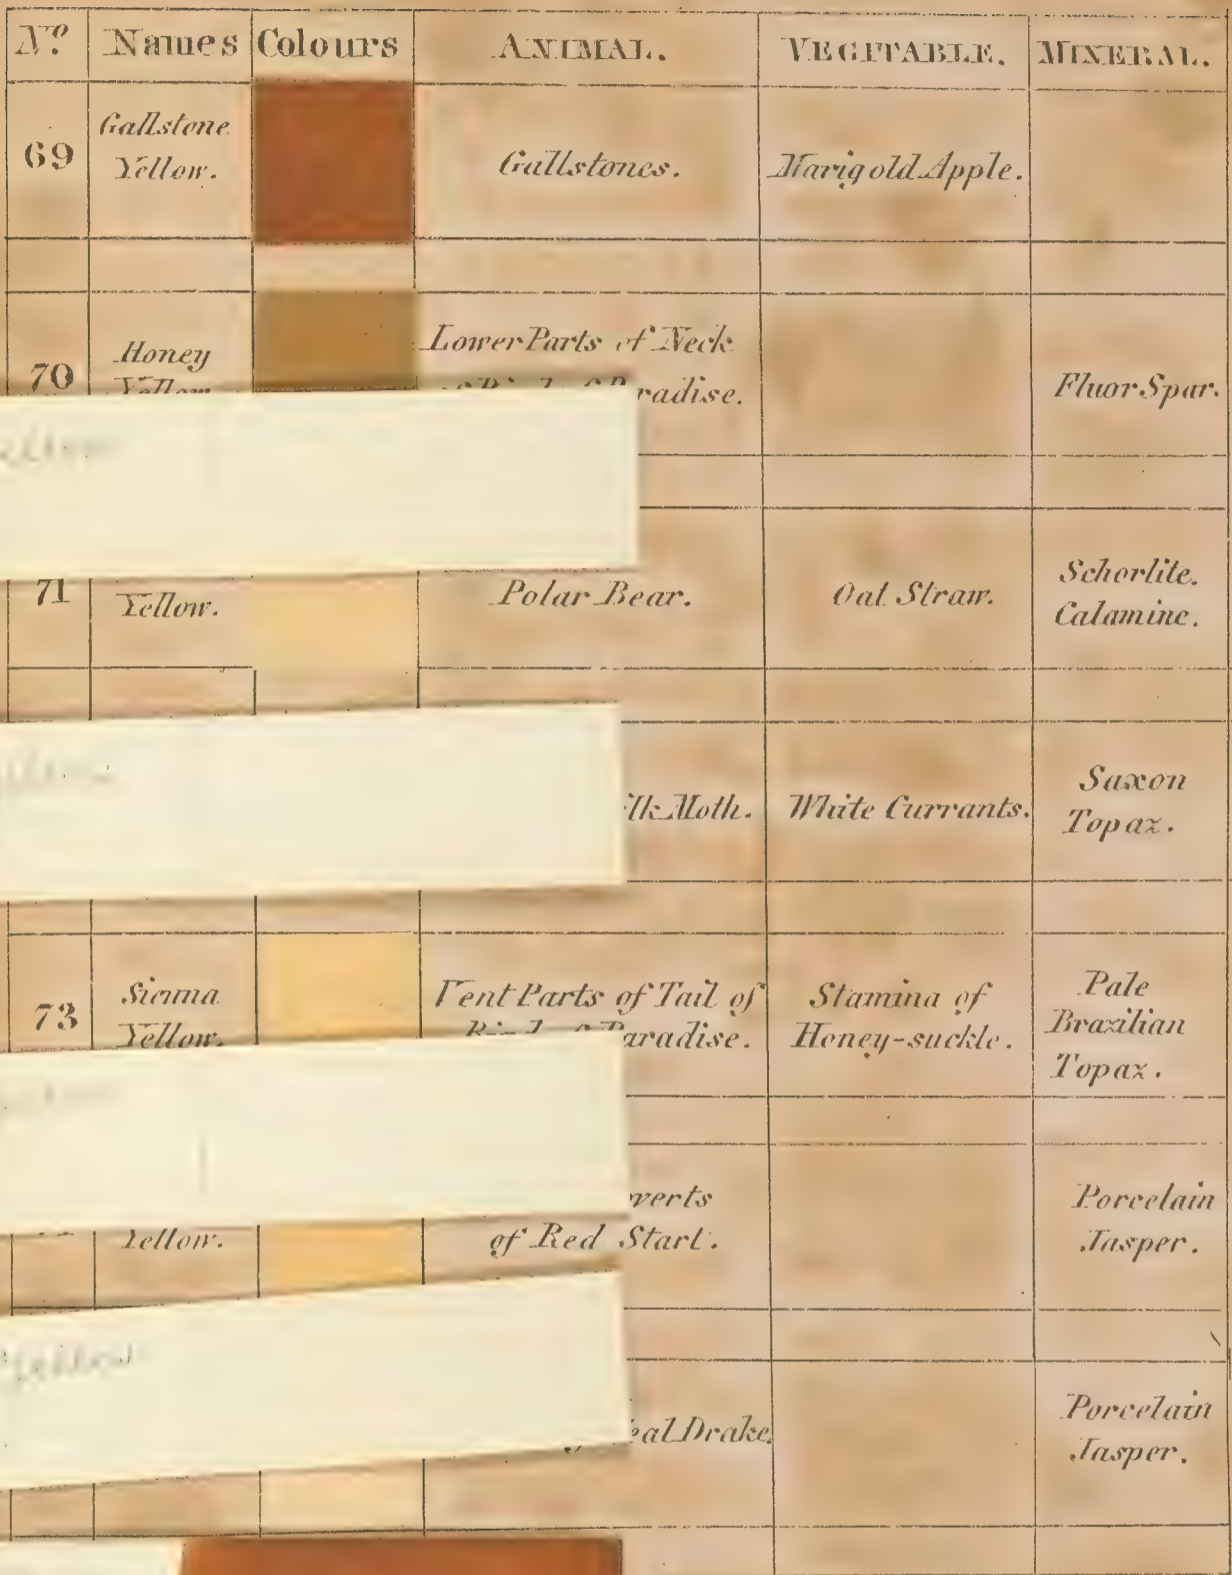 Nº Names Colours ANIMAL. VEGITABLE. MINERAL.
69 Gallstone Yellow. Gallstones. Marigold Apple.
70 Honey Yellow Lower Parts of Neck of Bird of Paradise. Fluor Spar.
71 Yellow. Polar Bear. Oat Straw. Schorlite. Calamine.
Moth. White Currants. Saxon Topaz.
73 Sienna Yellow. Vent Parts of Tail of Bird of Paradise. Stamina of Honey-suckle. Pale Brazilian Topaz.
Yellow. of Red Start. Porcelain Jasper.
Drake. Porcelain Jasper.